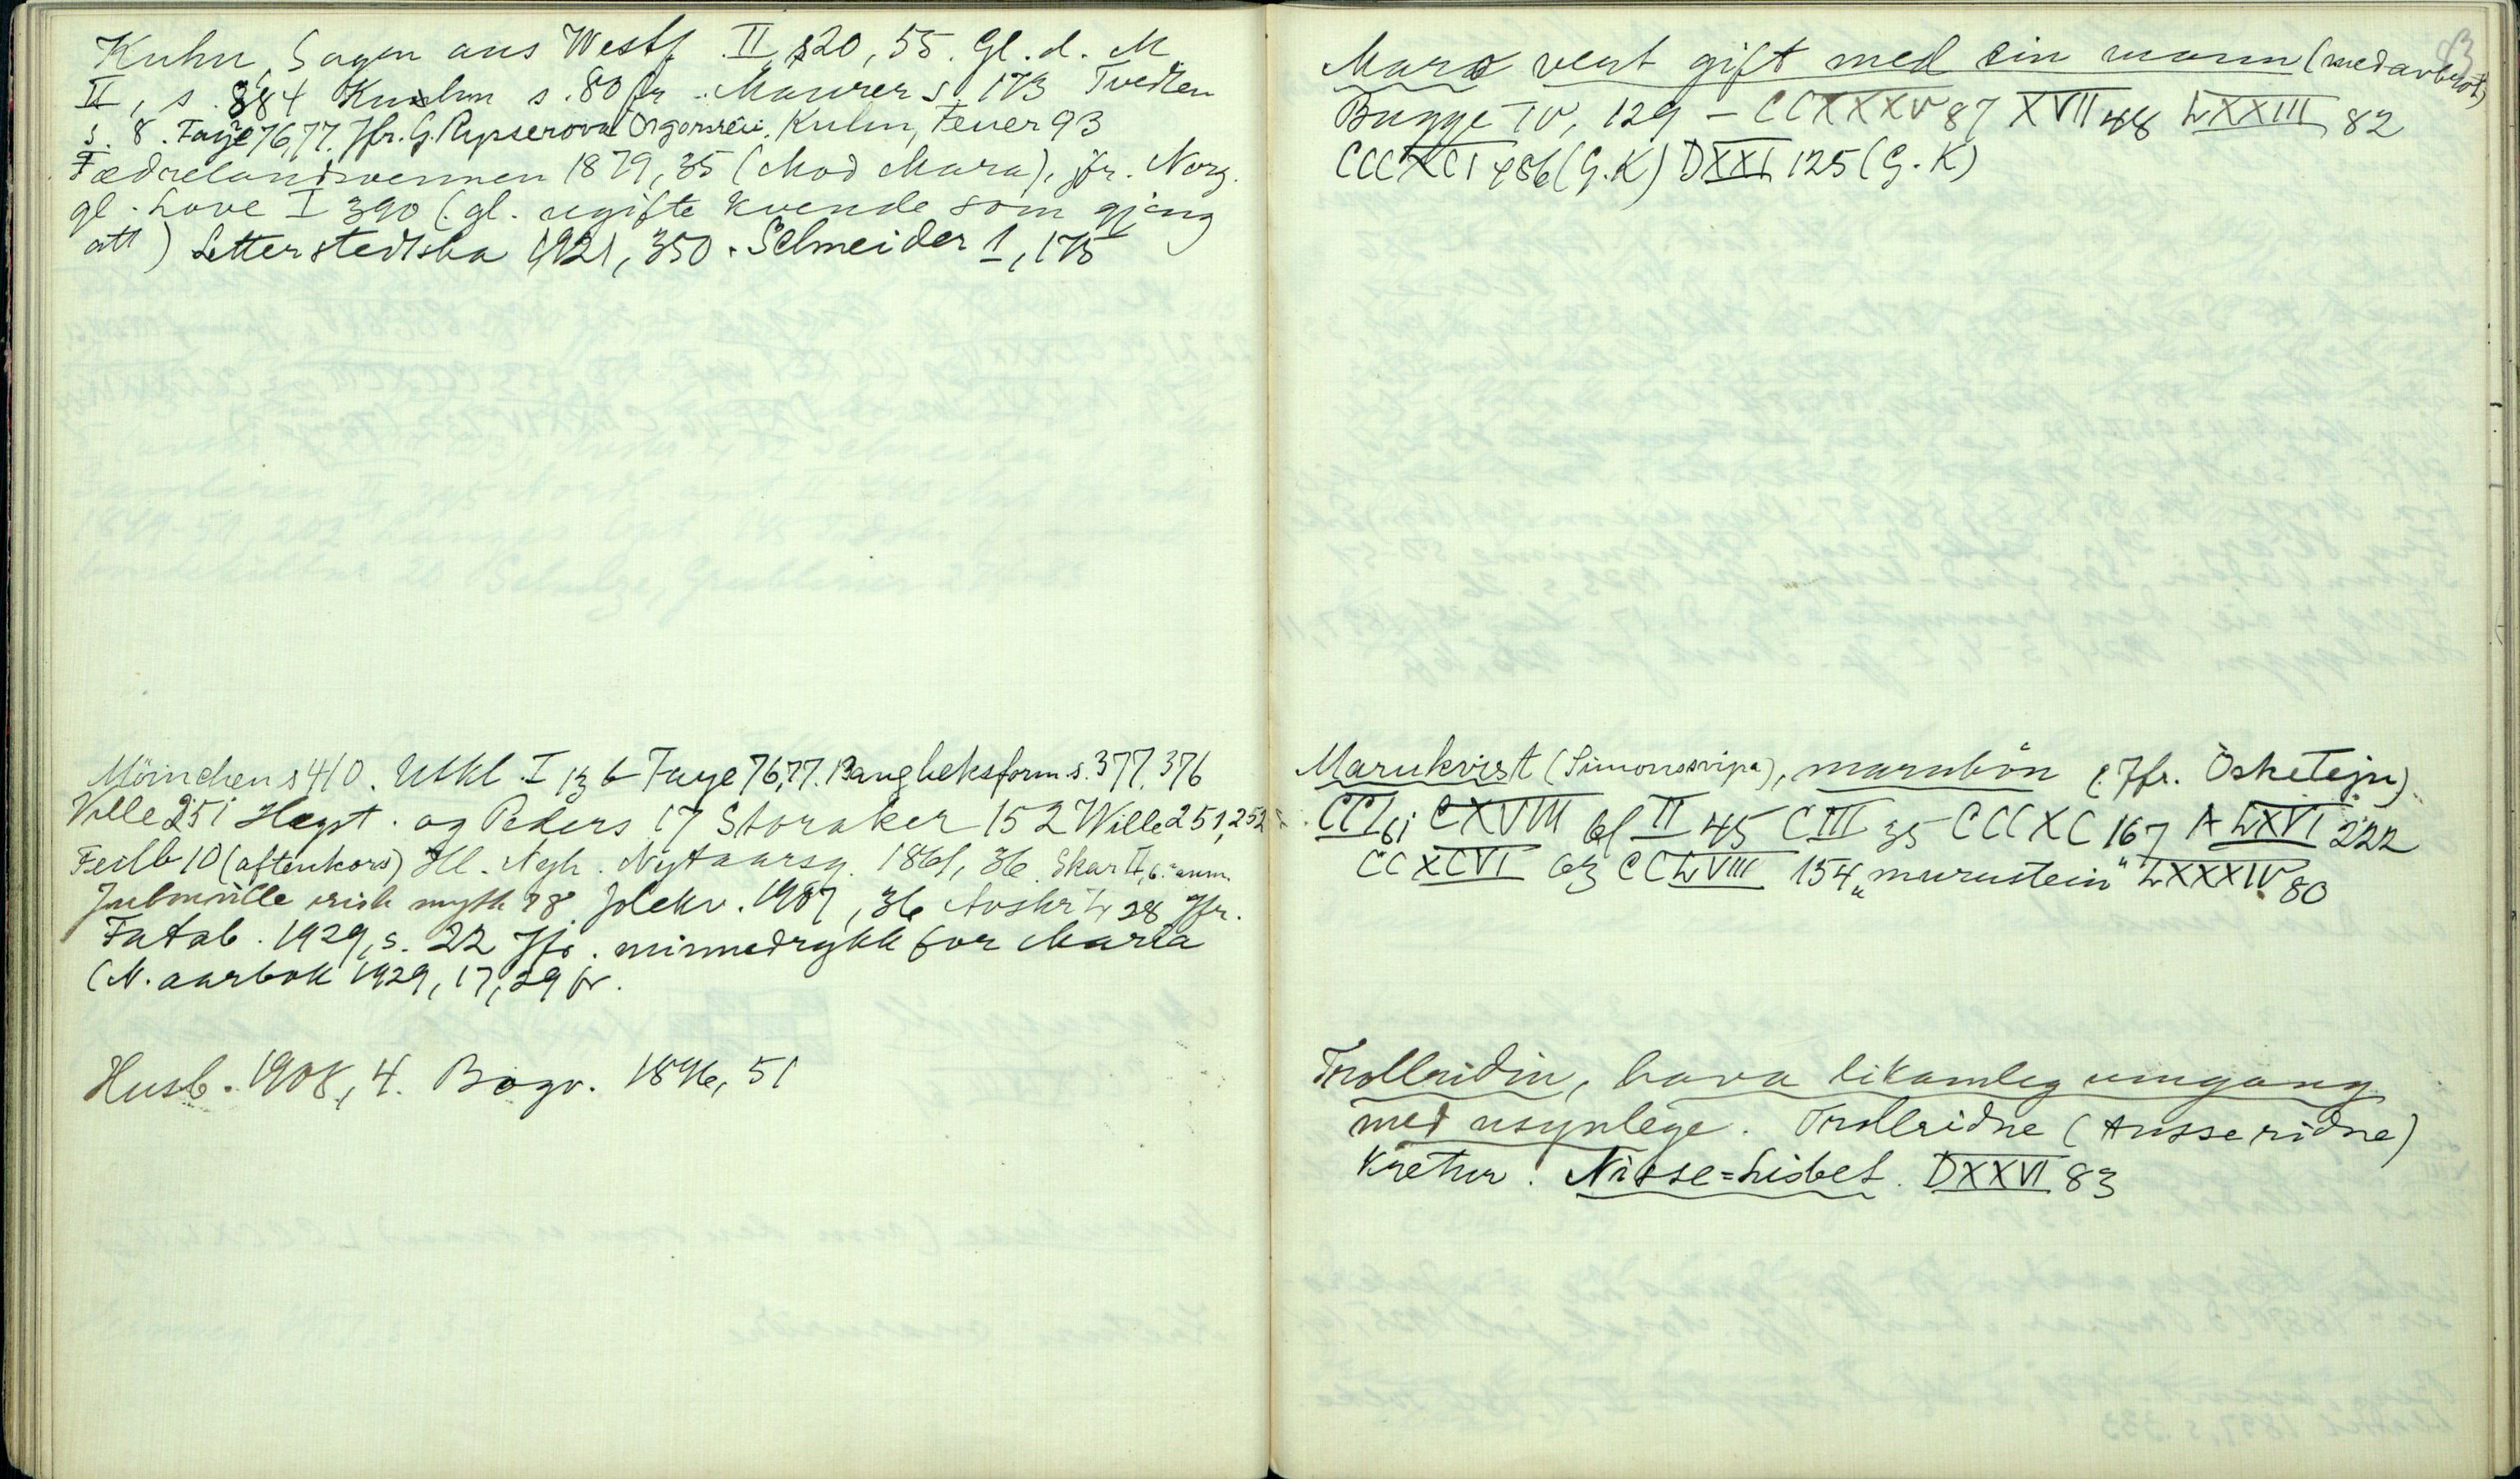 Kuhn, Sagen aus Westf. II, s20, 55. Gl. d. M
II, s. 884 Kuhn s. 80 fr. Maurer s. 173 Tvedten
s. 8. Faye 76,77. Jfr. G. Kuhn, Feuer 93
Fædrelandsvennen 1879, 35 (Mod Mara), jfr. Norg.
gl. Love I 390 (gl. ugifte kvende som gjeng
att) Letterstedtska 1921, 350. Schneider 1, 175
s 410. Utkl. I 136 Faye 76,77. Bang heksform. s. 377, 376
Wille 251 Hegst. og Peders 17 Storaker 152 Wille 251, 252
Feilb 10 (aftenkors) Ill. Nyh. Nytaarsg. 1861, 36. Skar II, 6. anm.
irish myth 78. Jolekv. 1907, 36 Avskr. L 28 Jfr.
Fatab. 1929, s. 22 Jfr. minnedrykk for Maria
(N. aarbok 1929, 17, 29 fr.
Husb. 1908, 4. Bogv. 1896, 51
83
Mara vert gift med ein mann (medarbust)
Bugge IV, 129 - CCXXXV 87 XVII 48 LXXIII 82
CCCXCI 486 (G.K) DXXI 125 (G.K)
Marukvist (Simonssvipa), marubön (Jfr. Osketejn)
CCI 61 CXVIII 61 II 45 CIII 35 CCCXC 167 A LXVI 222
CCXCVI 63 CCLVIII 154 „murustein" LXXXIV 80
Trollridin, hava likamleg umgang
med usynlege. Trollridne (Tusseridne)
kretur. Nisse=Lisbet. DXXVI 83